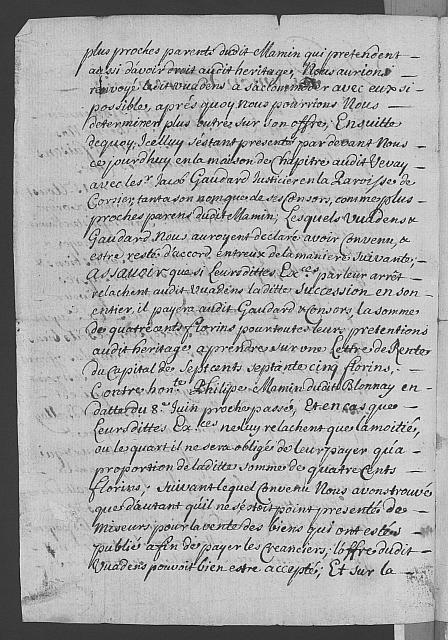 plus proches parents dudit Mamin qui pretendent
aussi d'avoir droit audit heritage, Nous aurions
renvoyé ledit Vuadens a s'accommoder avec eux si
possible, aprés quoy nous pourrions Nous
determiner plus outre sur son offre; En suitte
dequoy, Icelluy s'estant presenté pardevant Nous
cejourdhuy en la maison de Chapitre audit Vevay
avec le sr. Jacob Gaudard Justicier en la Paroisse de
Corsier, tant a son nom que de ses Consors, comme plus
proches parens dudit Mamin; Lesquels Vuadens &
Gaudard Nous auroyent declaré avoir convenu, &
estre resté d'accord entreux de la maniere suivante;
Assavoir que si Leursdittes Exces par leur arrêt
relachent audit Vuadens laditte succession en son
entier, il payera audit Gaudard & consors, la somme
de quatre cents florins pour toutes leurs pretentions
audit heritage, a prendre sur une Lettre de Rente
du Capital de Sept cents septante cinq florins,
Contre honte. Philipe Mamin dudit Blonnay en
datte du 8e. Juin proche passé, Et en cas que
Leursdittes Exces ne luy relachent que la moitié,
ou le quart il ne sera obligé de leur payer qu'a
proportion de laditte somme de quatre Cents
florins; Suivant lequel Convenu Nous avons trouvé
que d'autant qu'il ne s'est point presenté de
Miseurs pour la vente des biens qui ont estés
publié afin de payer les Creanciers; l'offre dudit
Vuadens pouvoit bien estre accepté, Et sur la